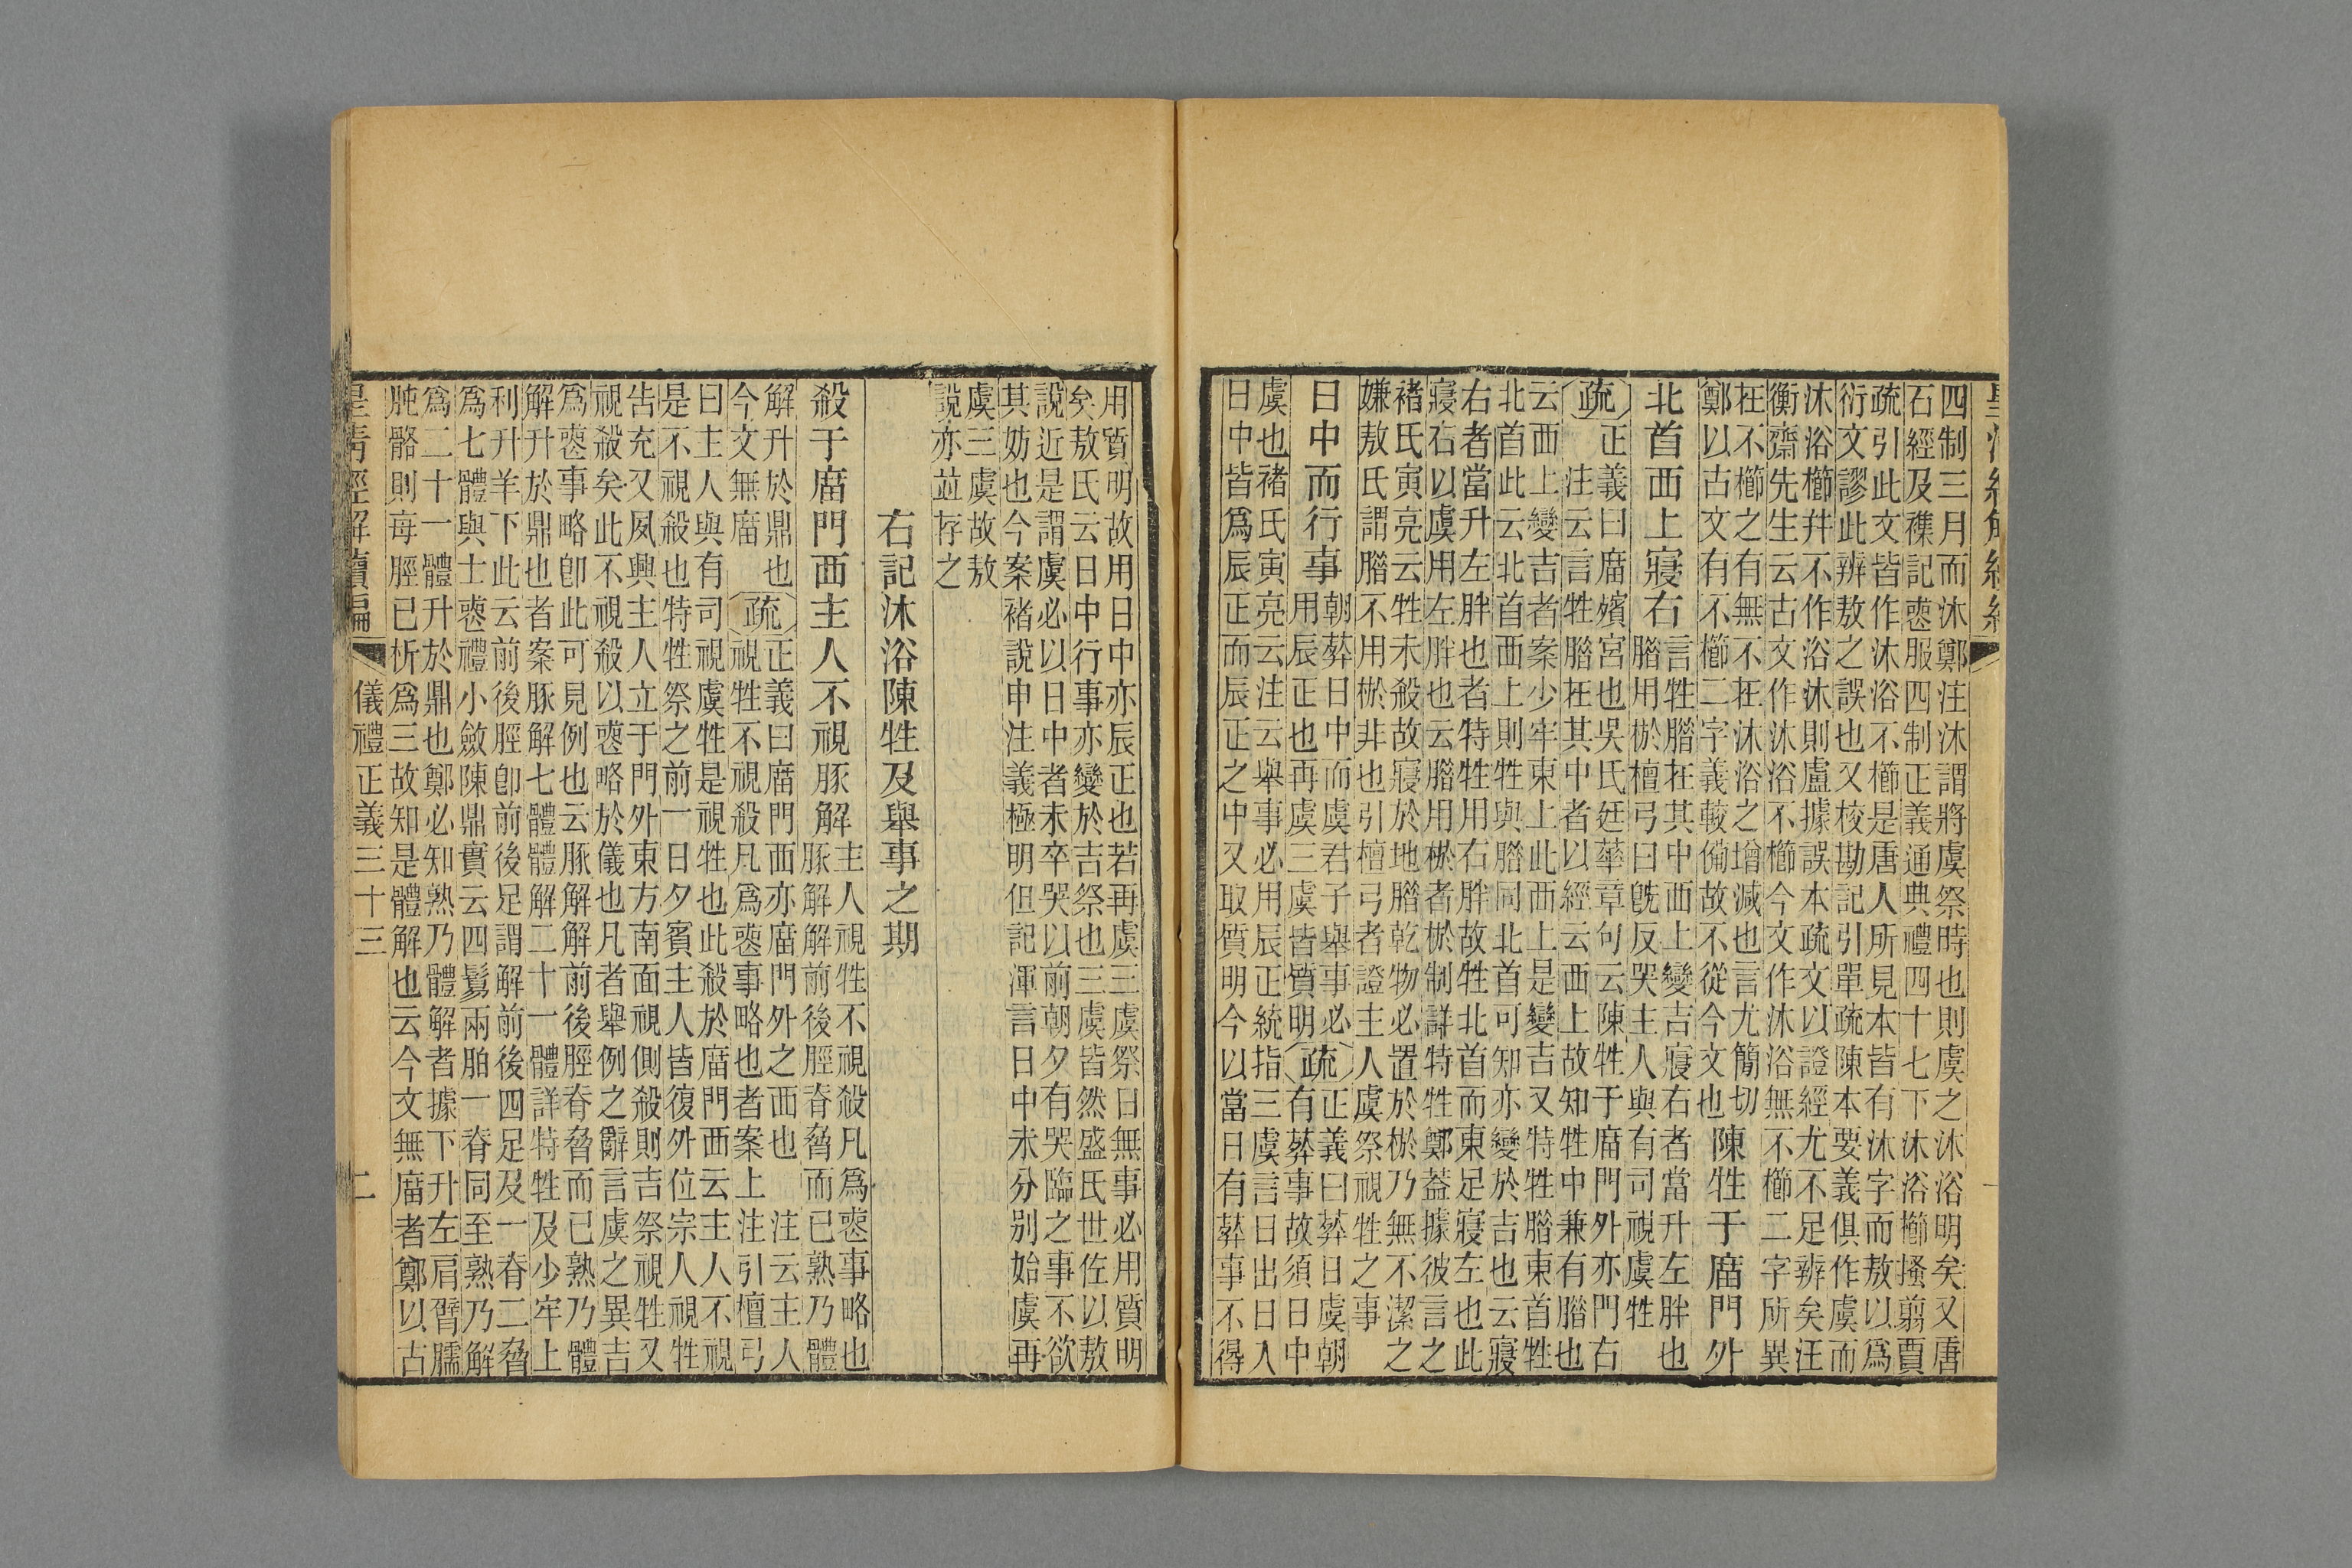 四制三月而沐鄭注沐謂將虞祭時也則虞之沐浴明矣又唐
石經及襍記喪服四制正義通典禮四十七下沐浴櫛搔翦賈
疏引此文皆作沐浴不櫛是唐人所見本皆有沐字而敖以爲
衍文謬此辨敖之誤也又校勘記引單疏陳本要義俱作虞而
沐浴櫛幷不作浴沐則盧據誤本疏文以證經尤不足辨矣汪
衡齋先生云古文作沐浴不櫛今文作沐浴無不櫛二字所異
在不櫛之有無不在沐浴之增減也言尤簡切
鄭以古文有不櫛二字義較備故不從今文也
陳牲于庿門外
北首西上寢右
言牲腊在其中西上變吉寢右者當升左胖也
腊用棜檀弓曰旣反哭主人與有司視虞牲
疏
正義曰庿殯宮也吳氏廷華章句云陳牲于庿門外亦門右
注云言牲腊在其中者以經云西上故知牲中兼有腊也
云西上變吉者案少牢東上此西上是變吉又特牲腊東首牲
北首此云北首西上則牲與腊同北首可知亦變於吉也云寢
右者當升左胖也者特牲用右胖故牲北首而東足寢左也此
寢右以虞用左胖也云腊用棜者棜制詳特牲鄭蓋據彼言之
褚氏寅亮云牲未殺故寢於地腊乾物必置於棜乃無不潔之
嫌敖氏謂腊不用棜非也引檀弓者證主人虞祭視牲之事
日中而行事
朝葬日中而虞君子舉事必
用辰正也再虞三虞皆質明
疏
正義曰葬日虞朝
有葬事故須日中
虞也褚氏寅亮云注云舉事必用辰正統指三虞言日出日入
日中皆爲辰正而辰正之中又取質明今以當日有葬事不得
用質明故用日中亦辰正也若再虞三虞祭日無事必用質明
矣敖氏云日中行事亦變於吉祭也三虞皆然盛氏世佐以敖
說近是謂虞必以日中者未卒哭以前朝夕有哭臨之事不欲
其妨也今案褚說申注義極明但記渾言日中未分別始虞再
虞三虞故敖
說亦並存之
右記沐浴陳牲及舉事之期
殺于庿門西主人不視豚解
主人視牲不視殺凡爲喪事略也
豚解解前後脛脊脅而已熟乃體
解升於鼎也
今文無庿
疏
正義曰庿門西亦庿門外之西也 注云主人
視牲不視殺凡爲喪事略也者案上注引檀弓
曰主人與有司視虞牲是視牲也此殺於庿門西云主人不視
是不視殺也特牲祭之前一日夕賓主人皆復外位宗人視牲
告充又夙興主人立于門外東方南面視側殺則吉祭視牲又
視殺矣此不視殺以喪略於儀也凡者舉例之辭言虞之異吉
爲喪事略卽此可見例也云豚解解前後脛脊脅而已熟乃體
解升於鼎也者案豚解七體體解二十一體詳特牲及少牢上
利升羊下此云前後脛卽前後足謂解前後四足及一脊二脅
爲七體與士喪禮小斂陳鼎實云四鬄兩胉一脊同至熟乃解
爲二十一體升於鼎也鄭必知熟乃體解者據下升左肩臂臑
肫骼則每脛已析爲三故知是體解也云今文無庿者鄭以古
皇清經解續編
儀禮正義三十三
二